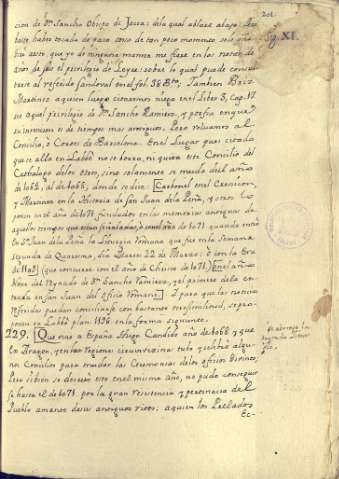 201
Sg. XI.
cion de Dn. Sancho Obispo de Jacca: de la qual hablare abajo.
haver tocado de paso como de tan poco momento solo
ser esto, que yo de ninguna manera me fiase en las notas, de
don de fue el privilegio de Leyre: sobre lo qual puede consul-
tarse al referido Sandoval en el fol. 38 Bto; Tambien Briz
Martinez aquien luego citaremos niega en el Libro 3, Cap. 17
su aquel privilegio de Dn. Sancho Ramirez, y porfia en que
se introdujo de tiempo mas antiguo. Pero volvamos al
Concilio, ò Cortes de Barcelona. En el Lugar que citado
que alla en Labbè no se borra, ni quita este Concilio del
Cathalogo de los otros, sino solamente se muda del año
de 1064, al de 1068, donde se dice: Carbonel en el Cronicon,
y Martinez en la Historia de San Juan dela Peña, y otros lo
ponen en el año de 1071 fundados en las memorias antiguas de
aquellos tiempos que estan señaladas, ò con el año de 1071 quando entrò
en Sn. Juan dela Peña la Liturgia Romana que fue en la Semana
segunda de Quaresma, dia Martes 22 de Marzo: ò con la Era
de 1109 (que conviene con el año de Christo de 1071) En el año
Nono del Reynado de Dn. Sancho Ramirez, y el primero dela en-
trada en San Juan del oficio Romano. I para que las noticias
referidas puedan conciliarse con bastante verosimilitud, se pro-
pone en Labbè plan. 1196 en la forma siguiente.
229. Que vino a España Hugo Candido año de 1068 y que
en Aragon, y en las regiones circunvecinas tubo y celebrò algu-
nos Concilios para mudar las Ceremonias de los oficios Divinos,
Pero si bien se decretò esto en el mismo año, no pudo conseguir-
se hasta el de 1071, por la gran resistencia y pertinacia del
Pueblo amante de su antiguos ritos; aquien los Prelados
Ec-